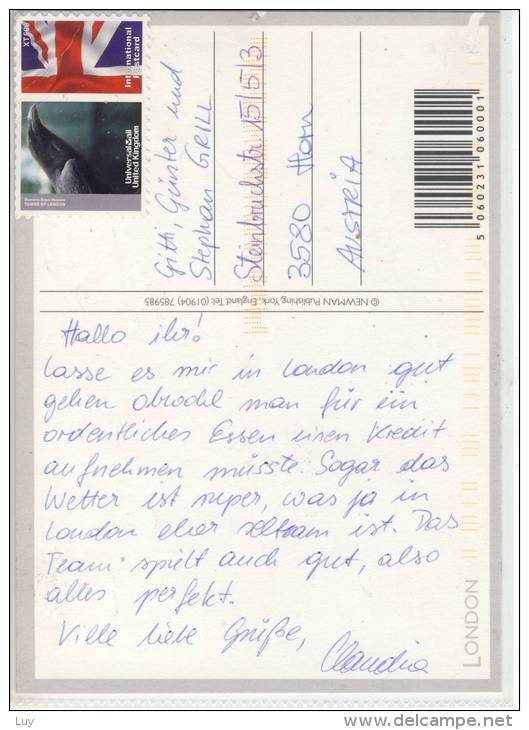 Hallo ihr!
Lasse es mir in London gut
gehen obwohl man für ein
ordentliches Essen einen Kredit
aufnehmen müsste. Sogar das
Wetter ist super, was ja in
London eher seltsam ist. Das
Team spielt auch gut, also
alles perfekt.
Viele liebe Grüße,
Claudia
Gitti, Günter und
Stephan GRILL
Steinbruchstr. 15/5/3
3580 Horn
AUSTRIA
© NEWMAN Publishing, York, England. Tel: (01904) 785985
LONDON
5 060231 060001
International
Postcard
Universal Mail
United Kingdom
TOWER OF LONDON
Luy
www.delcampe.net